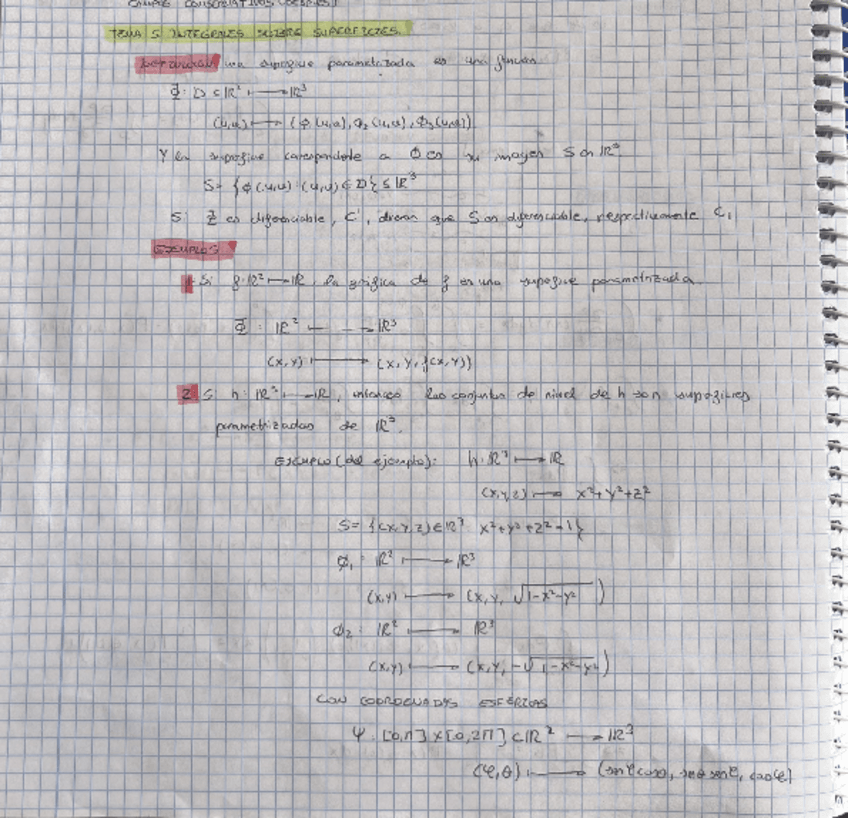 CAMPOS CONSERVATIVOS (DESPUÉS)
TEMA 5 INTEGRALES SOBRE SUPERFICIES.
DEFINICIÓN una superficie parametrizada es una función
Φ: D ⊂ ℝ² ⟼ ℝ³
(u,v) ⟼ (ϕ₁(u,v), ϕ₂(u,v), ϕ₃(u,v))
Y la superficie correspondiente a Φ es su imagen S en ℝ³.
S = {ϕ(u,v) : (u,v) ∈ D} ⊆ ℝ³
Si Φ es diferenciable, C¹, diremos que S es diferenciable, respectivamente C₁
EJEMPLOS
1 Si f: ℝ² ⟼ ℝ, la gráfica de f es una superficie parametrizada.
Φ : ℝ² ⟼ ℝ³
(x,y) ⟼ (x, y, f(x,y))
2 Si h: ℝ³ ⟼ ℝ, entonces los conjuntos de nivel de h son superficies
parametrizadas de ℝ³.
EJEMPLO (del ejemplo): h: ℝ³ ⟼ ℝ
(x,y,z) ⟼ x²+y²+z²
S = {(x,y,z) ∈ ℝ³ x²+y²+z²=1}
ϕ₁ : ℝ² ⟼ ℝ³
(x,y) ⟼ (x, y, √1-x²-y² )
ϕ₂ : ℝ² ⟼ ℝ³
(x,y) ⟼ (x, y, -√1-x²-y²)
CON COORDENADAS ESFÉRICAS
Ψ : [0,π] x [0,2π] ⊂ ℝ² ⟶ ℝ³
(φ,θ) ⟼ (senφ cosθ, senθ senφ, cosφ)